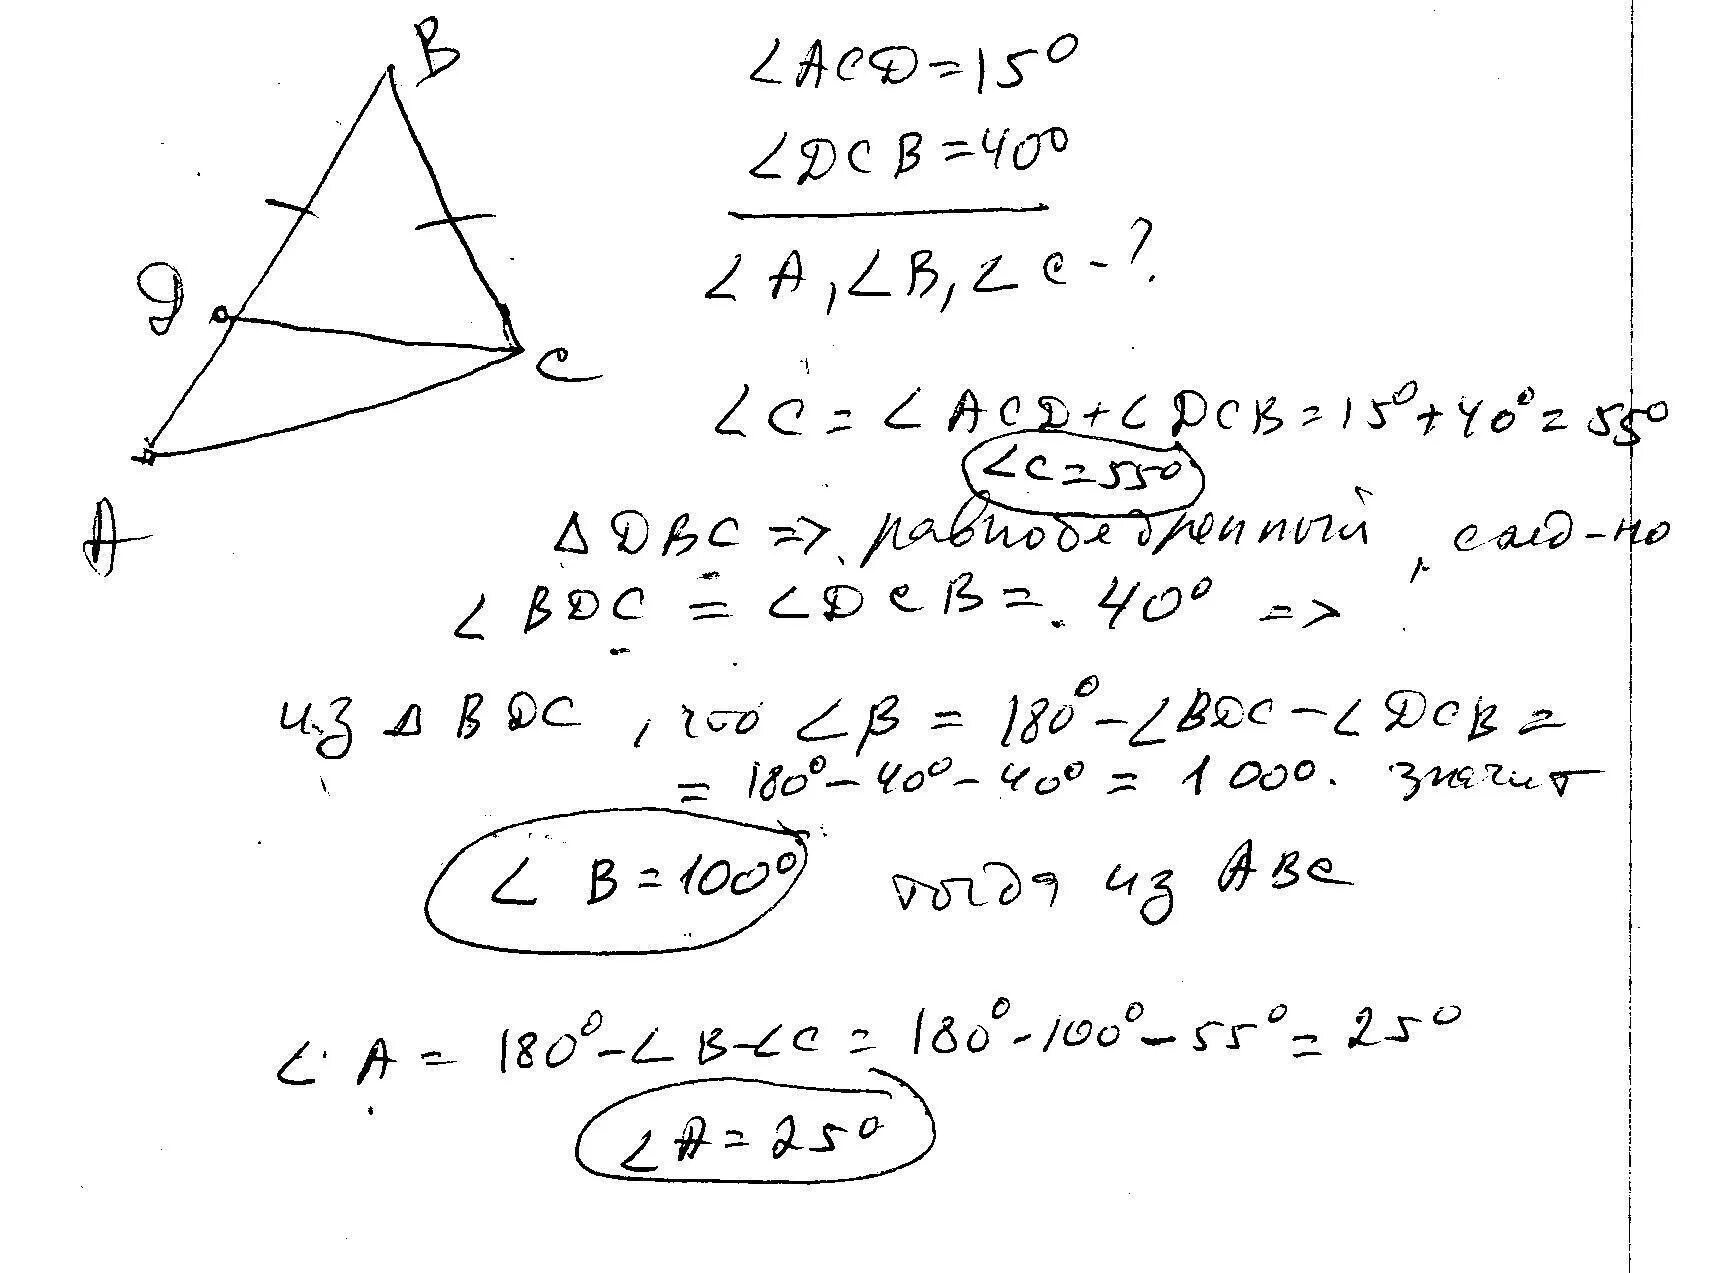 B
∠ACD=15°
∠DCB=40°
∠A, ∠B, ∠C-?
D
C
A
∠C = ∠ACD+∠DCB=15°+40°=55°
∠C=55°
Δ DBC => равнобедренный, след-но
∠BDC = ∠DCB = 40° =>
из Δ BDC, что ∠B = 180°-∠BDC-∠DCB=
= 180°-40°-40° = 100°. значит
∠B=100° тогда из ABC
∠A = 180°-∠B-∠C = 180°-100°-55°=25°
∠A=25°